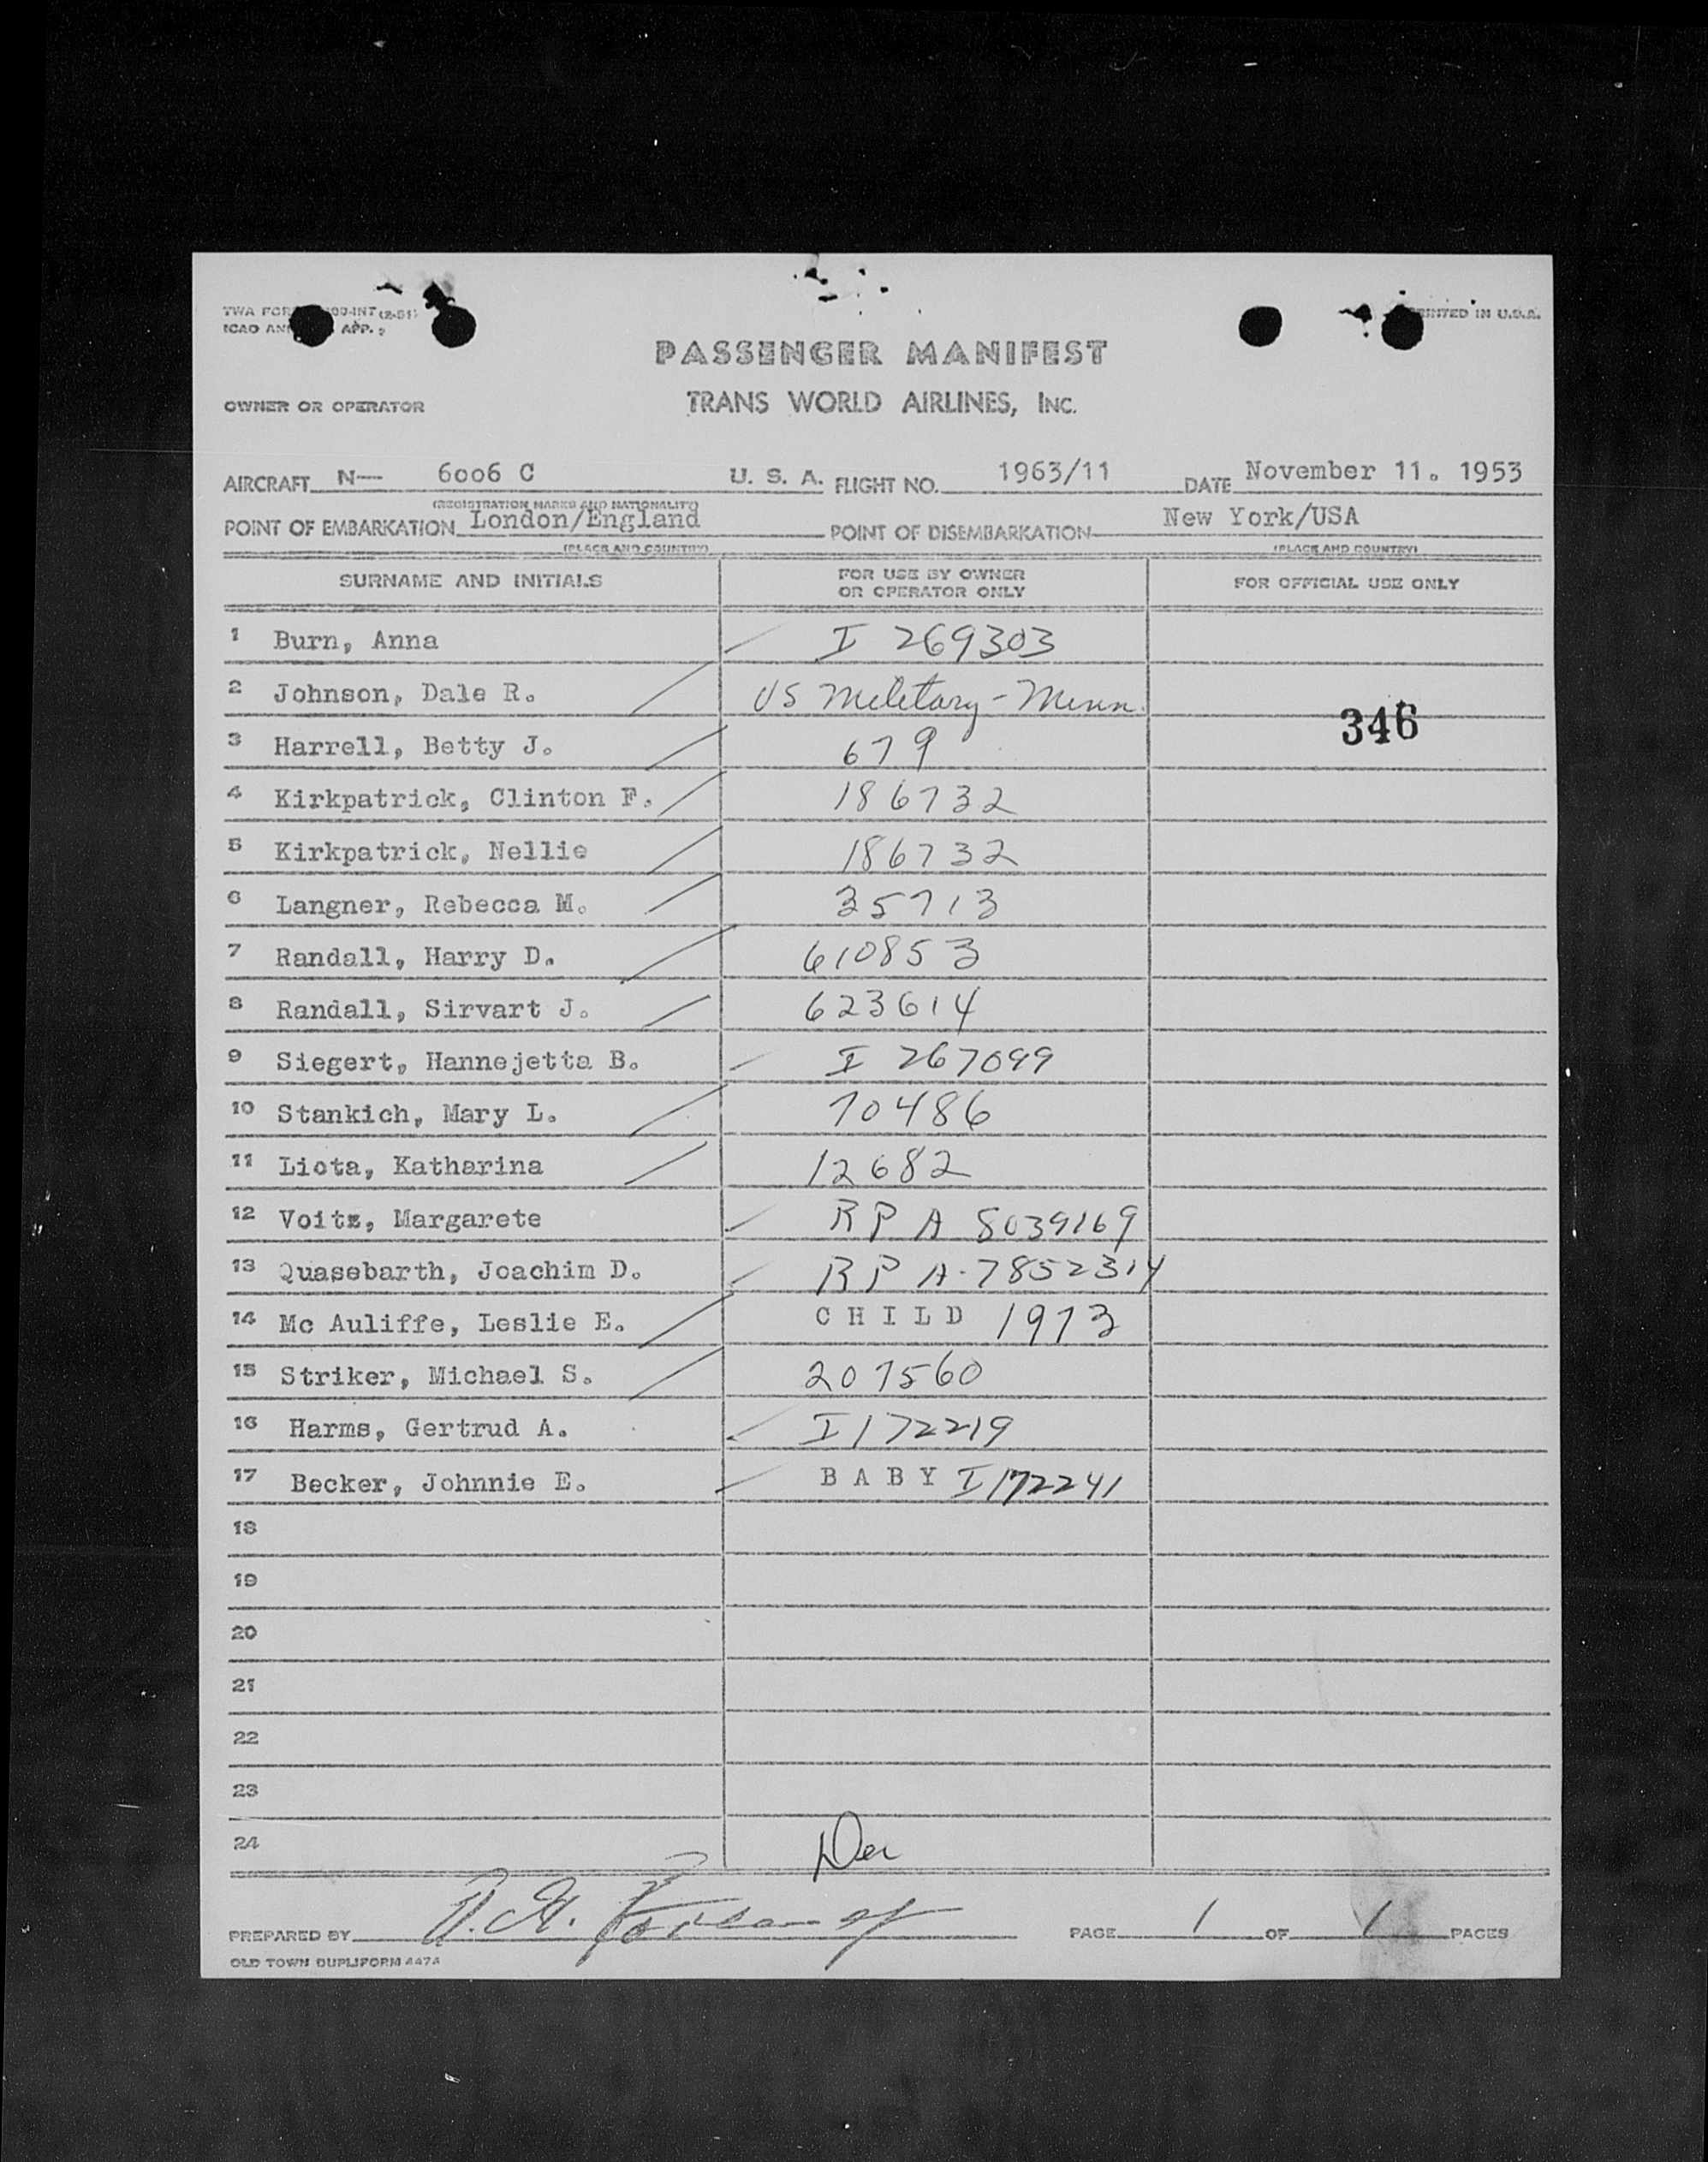 TWA FOR 00-INT (2-51)
ICAO AN APP. 2
PRINTED IN U.S.A.
PASSENGER MANIFEST
OWNER OR OPERATOR TRANS WORLD AIRLINES, INC.
AIRCRAFT N— 6006 C U. S. A. FLIGHT NO. 1963/11 DATE November 11. 1953
(REGISTRATION MARKS AND NATIONALITY)
POINT OF EMBARKATION London/England POINT OF DISEMBARKATION New York/USA
(PLACE AND COUNTRY) (PLACE AND COUNTRY)
SURNAME AND INITIALS FOR USE BY OWNER OR OPERATOR ONLY FOR OFFICIAL USE ONLY
1 Burn, Anna I 269303
2 Johnson, Dale R. US Military - Minn.
346
3 Harrell, Betty J. 679
4 Kirkpatrick, Clinton F. 186732
5 Kirkpatrick, Nellie 186732
6 Langner, Rebecca M. 35713
7 Randall, Harry D. 610853
8 Randall, Sirvart J. 623614
9 Siegert, Hannejetta B. I 267099
10 Stankich, Mary L. 70486
11 Liota, Katharina 12682
12 Voitz, Margarete R P A 8039169
13 Quasebarth, Joachim D. R P A-7852314
14 Mc Auliffe, Leslie E. C H I L D 1973
15 Striker, Michael S. 207560
16 Harms, Gertrud A. I172219
17 Becker, Johnnie E. B A B Y I172241
18
19
20
21
22
23
24
PREPARED BY PAGE 1 OF 1 PAGES
OLD TOWN DUPLIFORM 4474